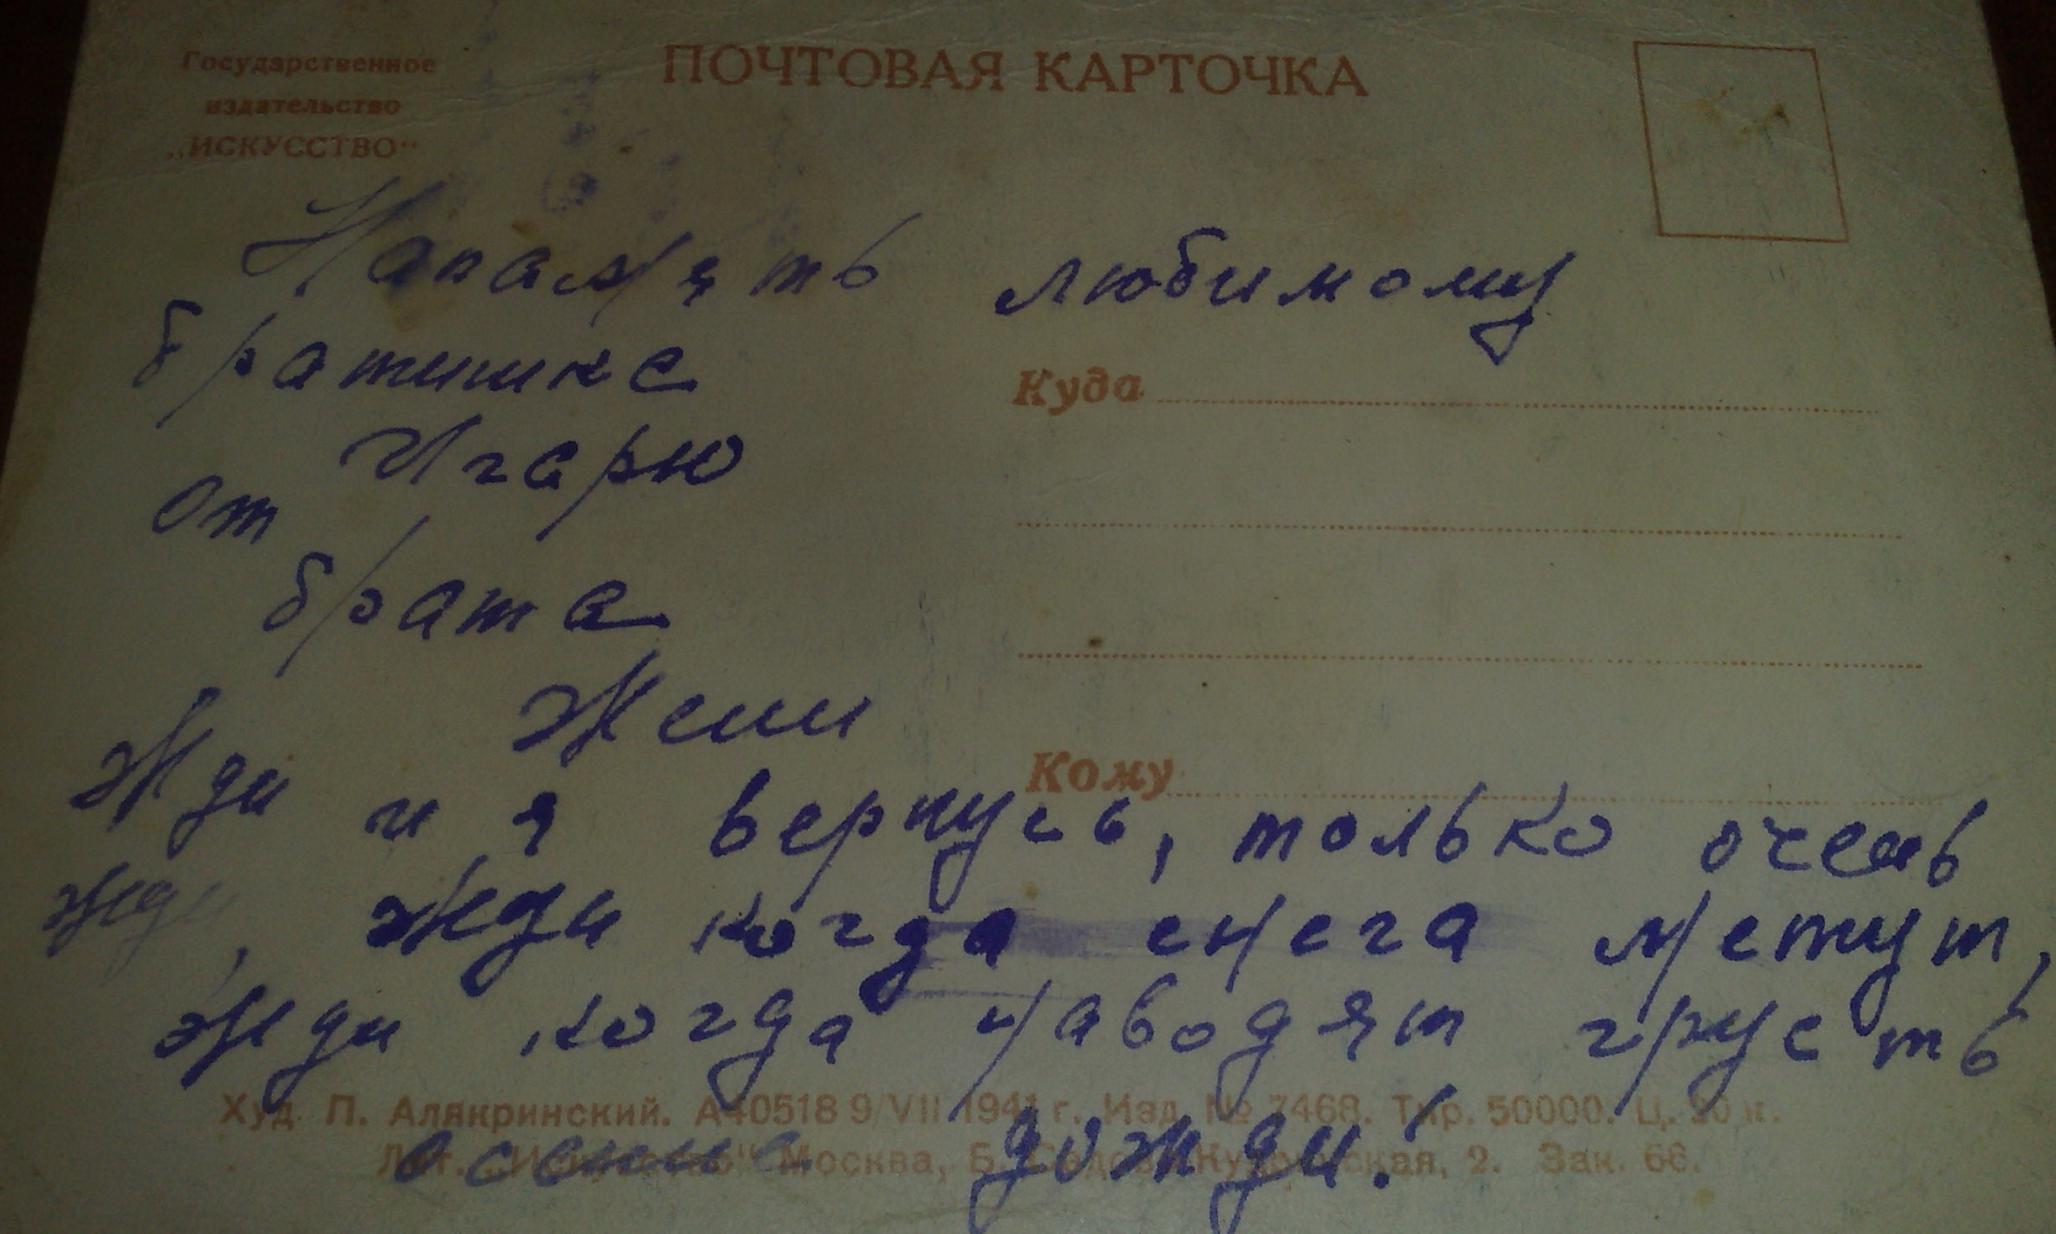 Государственное
издательство
„ИСКУССТВО"
ПОЧТОВАЯ КАРТОЧКА
Напамять любимому
братишке
Игарю
от
брата
Жени
Куда
Кому
Жди и я вернусь, только очень
жди, жди когда снега метут,
Жди когда наводят грусть
осение дожди!
Худ. П. Алякринский. А40518 9/VII 1941 г. Изд. № 7468. Тир. 50000. Ц. 20 к.
Лит. „Искусство" Москва, Б. Садово-Кудринская, 2. Зак. 66.